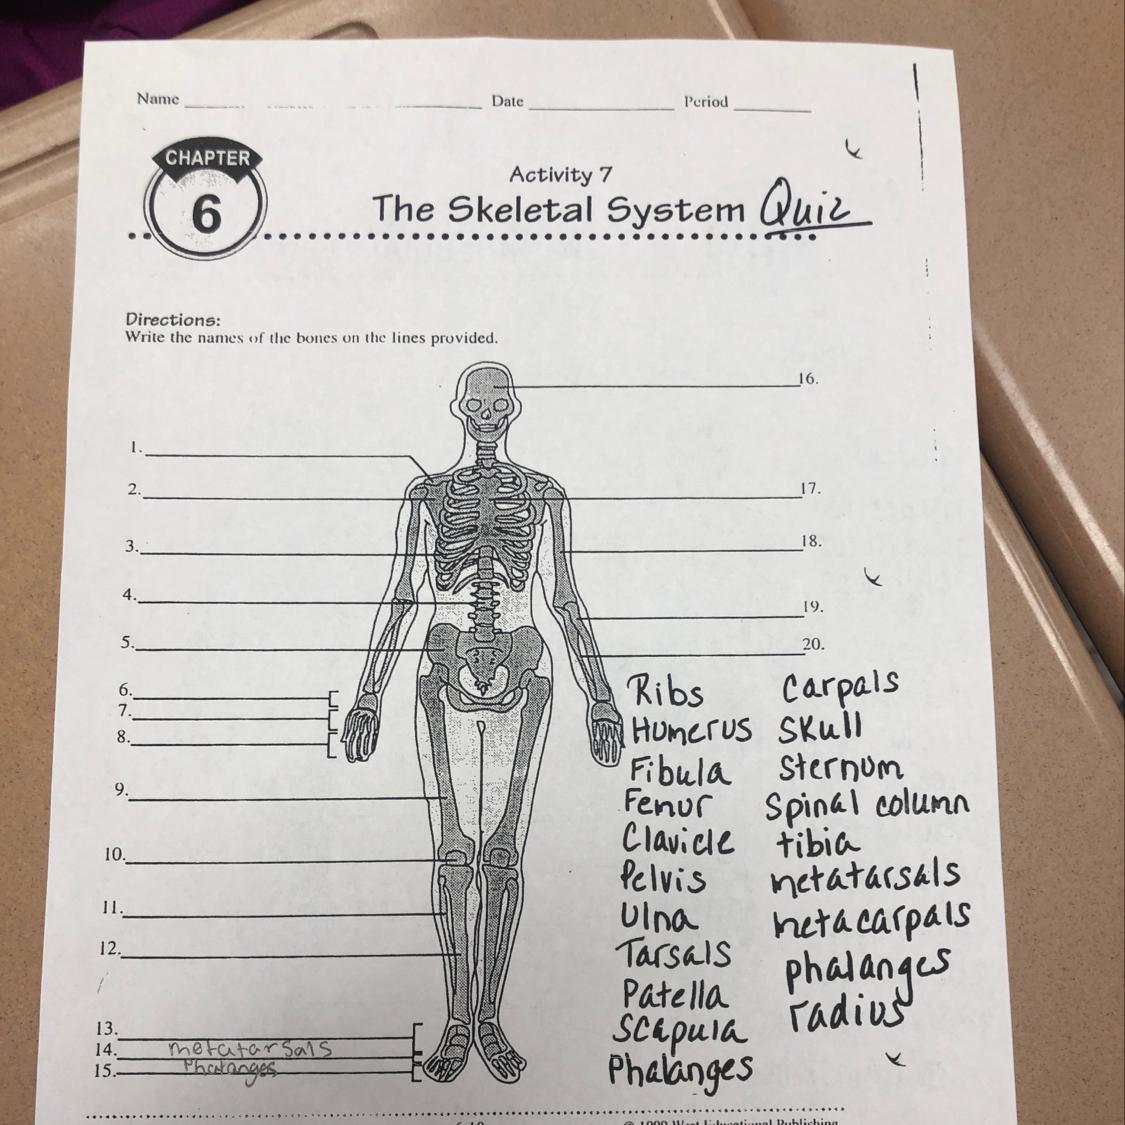 Name Date Period
CHAPTER
6
Activity 7
The Skeletal System Quiz
Directions:
Write the names of the bones on the lines provided.
16.
1.
2.
17.
3.
18.
4.
19.
5.
20.
6.
7.
8.
9.
10.
11.
12.
13.
14. metatarsals
15. Phalanges
Ribs
Humerus
Fibula
Femur
Clavicle
Pelvis
Ulna
Tarsals
Patella
Scapula
Phalanges
Carpals
Skull
Sternum
Spinal column
tibia
metatarsals
metacarpals
phalanges
radius
© 1999 West Educational Publishing